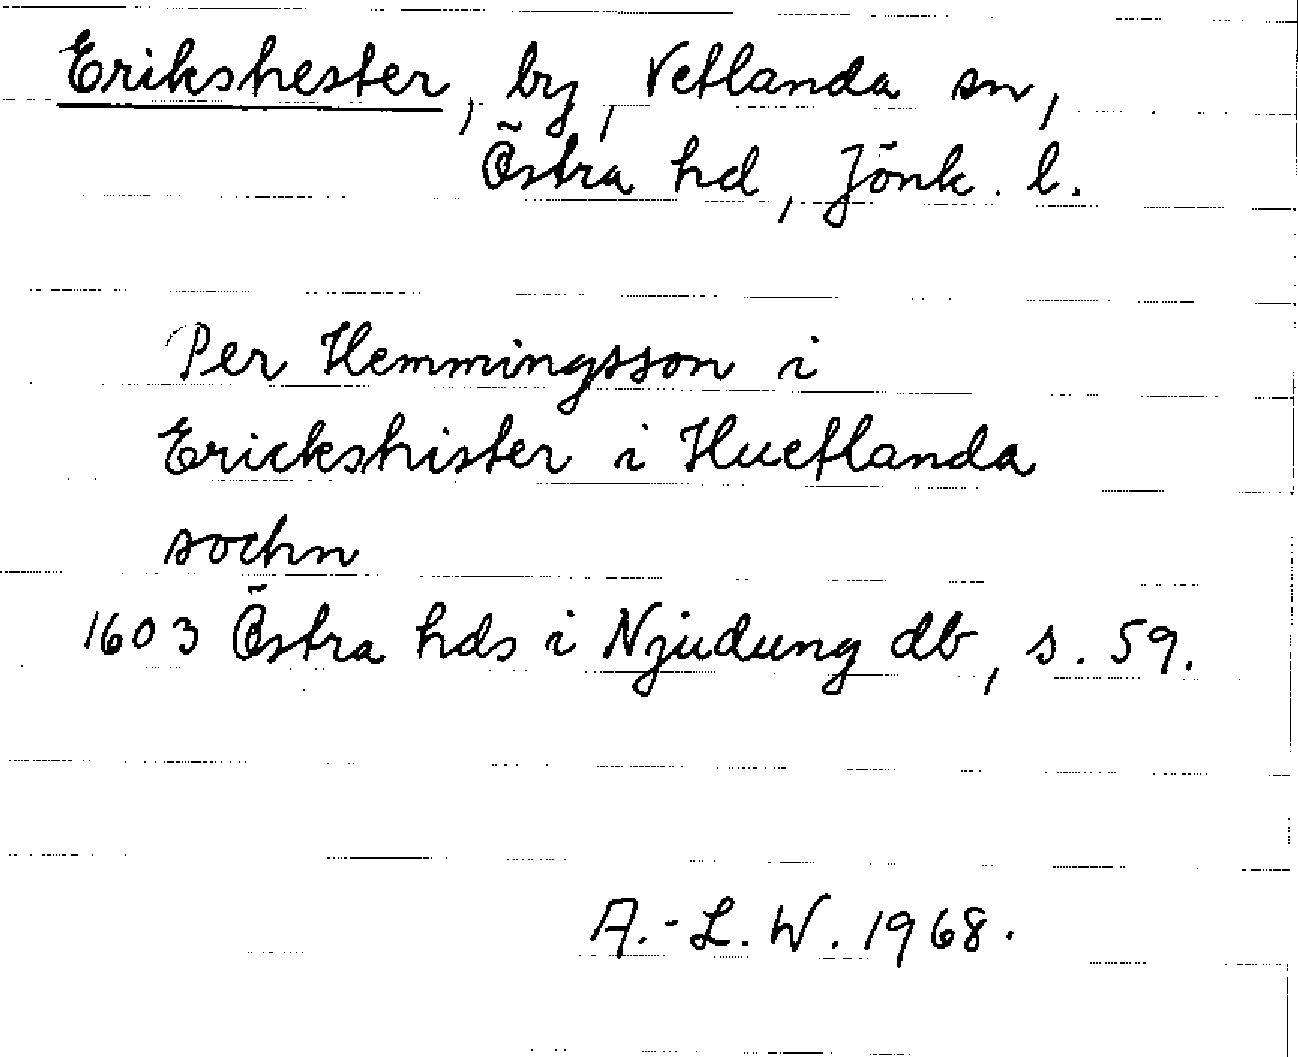 Erikshester, by, Vetlanda sn,
Östra hd, Jönk. l.
Per Hemmingsson i
Erickshister i Huetlanda
sochn
1603 Östra hds i Njudung db, s. 59.
A.-L. W. 1968.